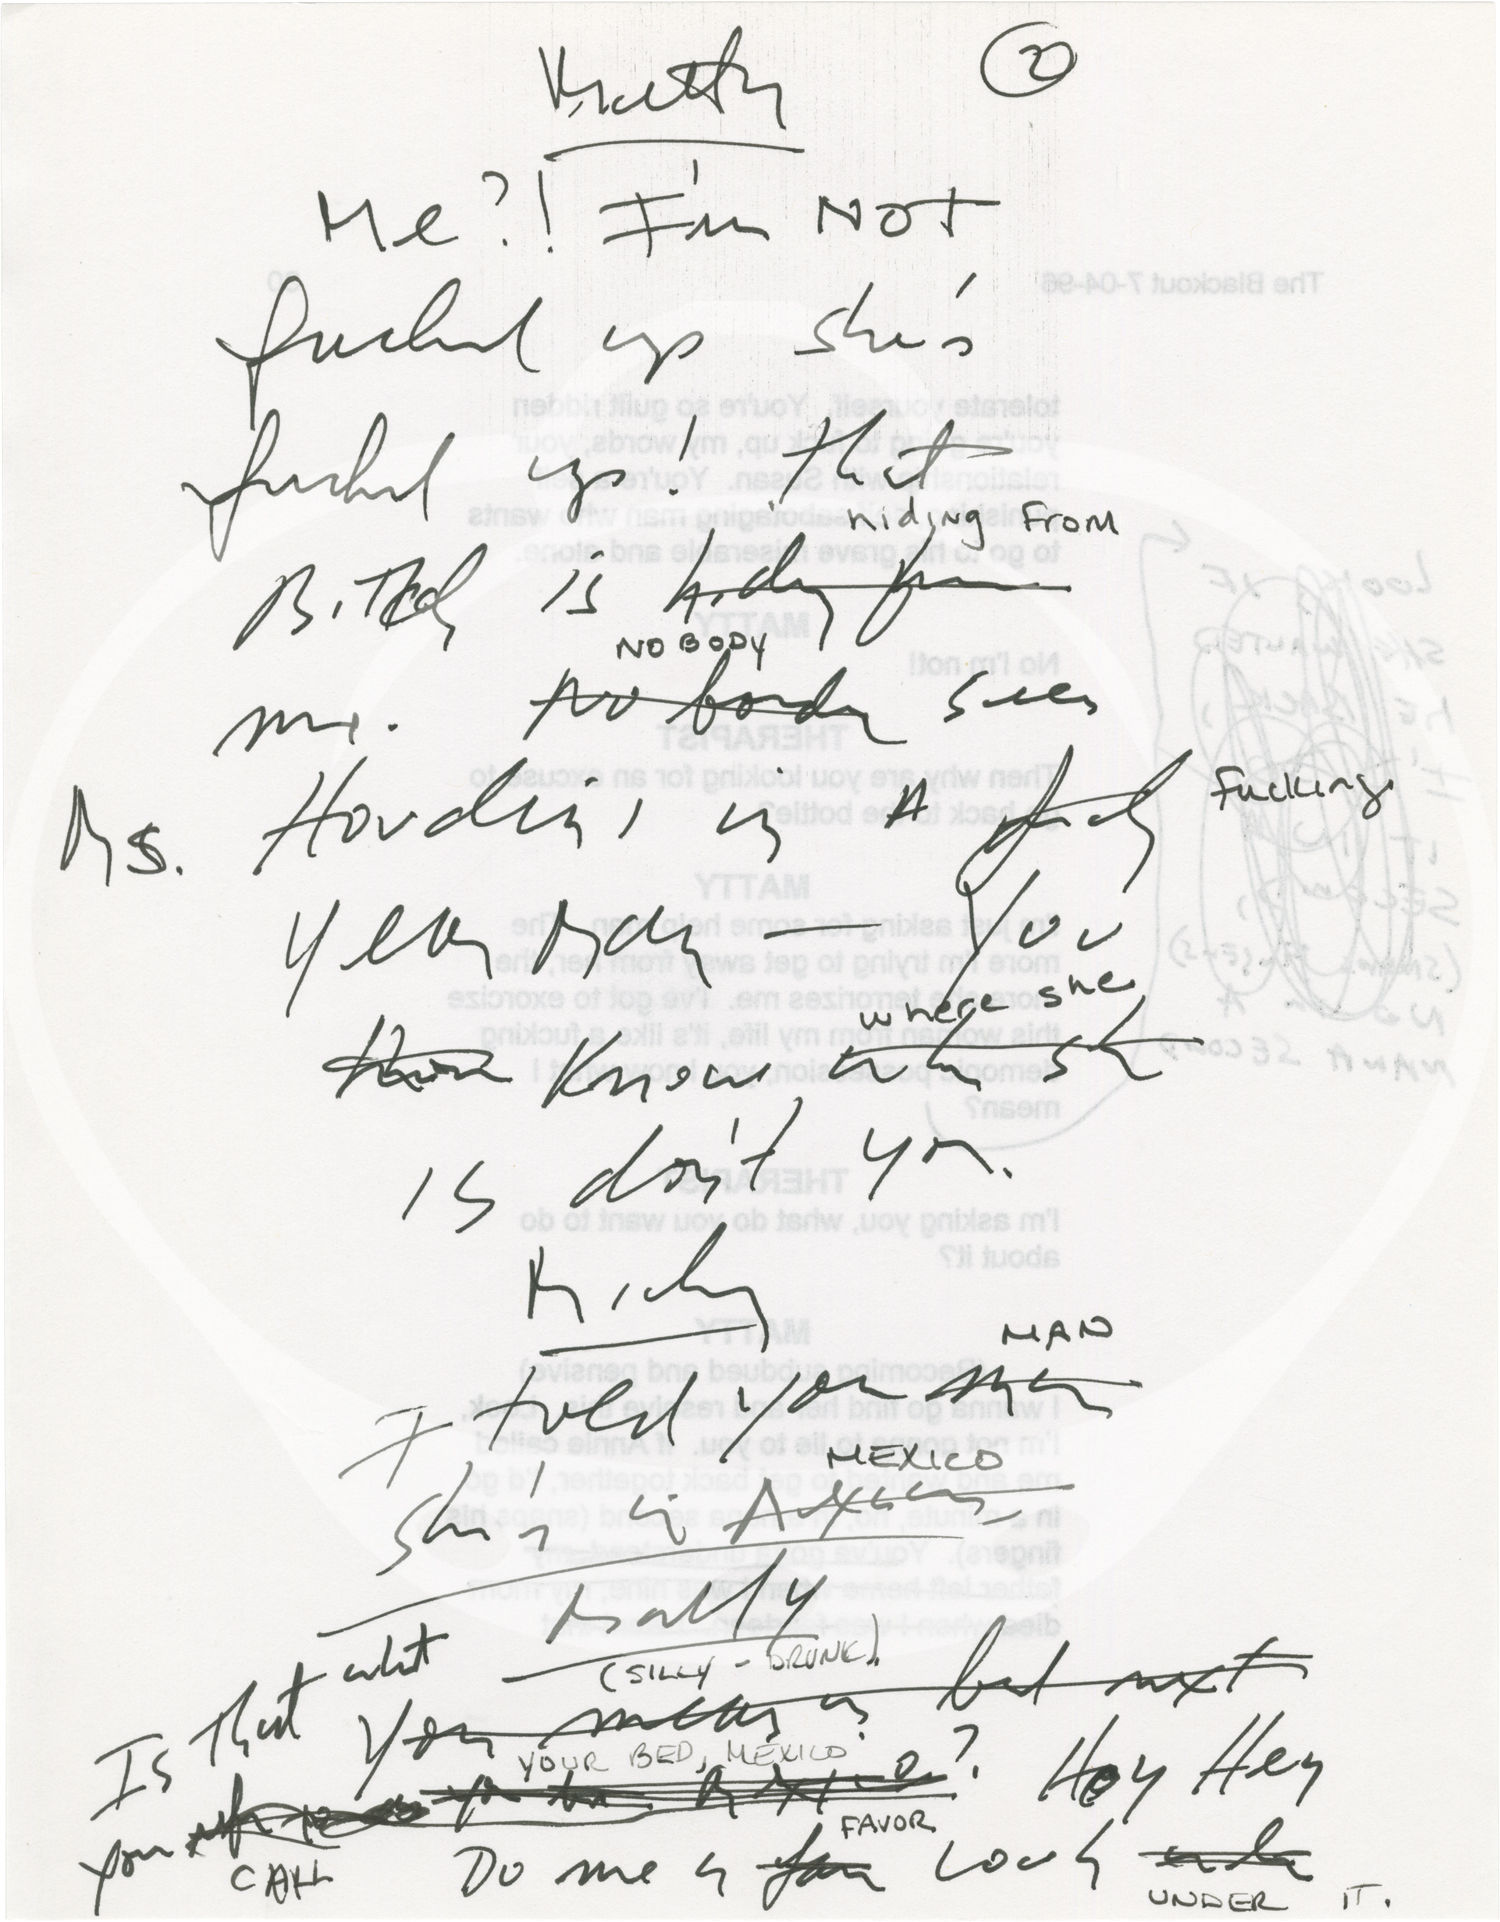 Matty
2
Me?! I'm NOT
fucked up she's
fucked up! that
hiding FROM
Bitch is hiding from
NOBODY
me. No body sees
Ms. Houdini in A fucking
year man — You
where she
know where she
is don't you.
Micky
MAN
I told you man
MEXICO
she's in Mexico
Matty
(SILLY - DRUNK)
Is that what you mean is bed next
YOUR BED, MEXICO
you ? Hey Hey
CALL
FAVOR
Do me a favor look under
UNDER IT.
The Blackout 7-04-96
tolerate yourself. You're so guilt ridden
you're going to fuck up, my words, your
relationship with Susan. You're a self
punishing, self sabotaging man who wants
to go to his grave miserable and alone.
MATTY
No I'm not!
THERAPIST
Then why are you looking for an excuse to
go back to the bottle?
MATTY
I'm just asking for some help man. The
more I'm trying to get away from her, the
more she terrorizes me. I've got to exorcize
this woman from my life, it's like a fucking
demonic possession, you know what I
mean?
THERAPIST
I'm asking you, what do you want to do
about it?
MATTY
(Becoming subdued and pensive)
I wanna go find her and resolve this. Look,
I'm not gonna to lie to you. If Annie called
me and wanted to get back together, I'd go
in a minute, no, in a nana second (snaps his
fingers). You've got to understand my
father left home when I was nine, my mom
died when I was
LOOK IF
SHE WANTED
ME BACK,
I'D
IT IN A
SECOND,
(SNAPS FINGERS)
NO IN A
NANA SECOND